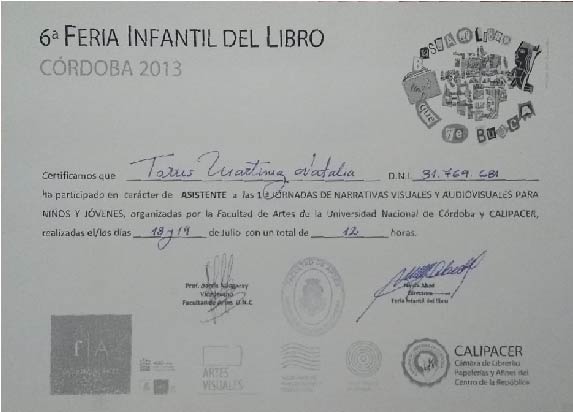 6ª FERIA INFANTIL DEL LIBRO
CÓRDOBA 2013
BUSCA el LibRO
que Te BuscA
Certificamos que Torres Martinez Natalia D.N.I. 31.769.681
ha participado en carácter de ASISTENTE a las 1ª JORNADAS DE NARRATIVAS VISUALES Y AUDIOVISUALES PARA
NIÑOS Y JÓVENES, organizadas por la Facultad de Artes de la Universidad Nacional de Córdoba y CALIPACER,
realizadas el/los días 18 y 19 de Julio con un total de 12 horas.
FACULTAD DE ARTES
Vicedecano
Facultad de Artes U.N.C.
Directora
Feria Infantil del Libro
f|A
ARTES
VISUALES
CALIPACER
Cámara de Librerías
Papelerías y Afines del
Centro de la República